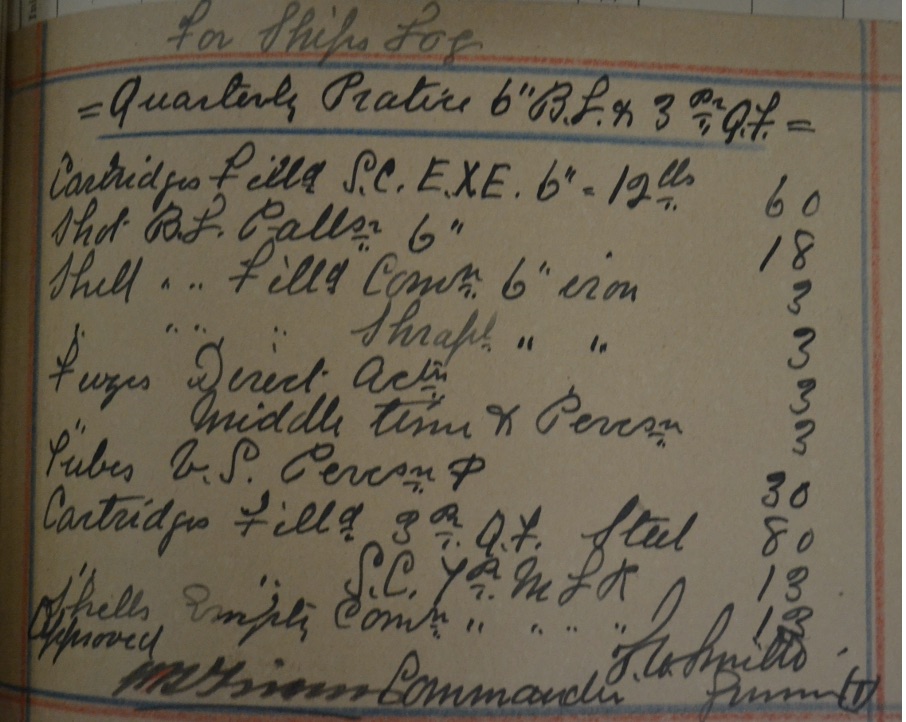 For Ships Log
= Quarterly Pratice 6" B.L. & 3 Pr Q.F. =
Cartridges Filld S.C. E.X.E. 6" = 12 lbs 60
Shot B.L. Pallsr 6" 18
Shell " " Filld Comn 6" iron 3
" " " " Shrapl " " 3
Fuzes Direct Actn 3
" Middle time & Percsn 3
Tubes V.S. Percsn P 30
Cartridges Filld 3 Pr Q.F. Steel 80
" " S.C. 7 Pr M L R 13
Shells Empty Comn " " " " 13
Approved
Commander (T)